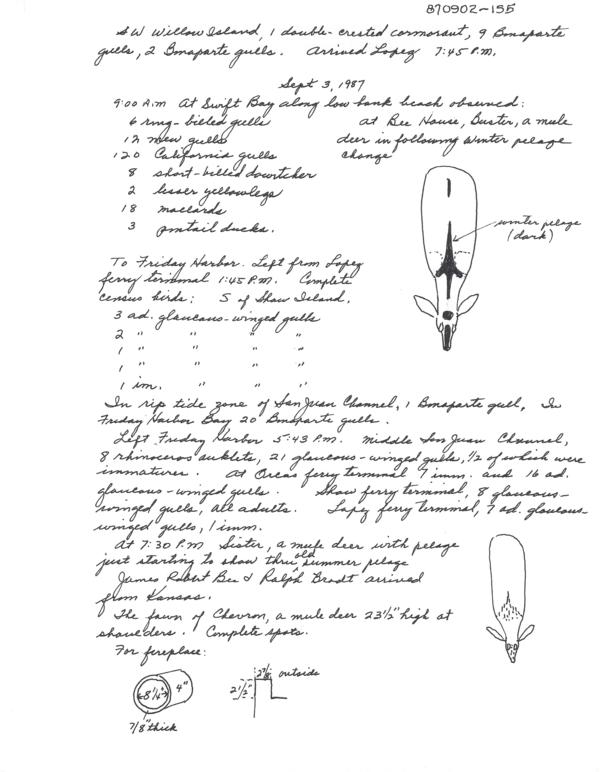 870902-155
SW Willow Island, 1 double-crested cormorant, 9 Bonaparte
gulls, 2 Bonaparte gulls. Arrived Lopez 7:45 P.M.
Sept 3, 1987
9:00 A.M At Swift Bay along low bank beach observed:
6 ring-billed gulls
12 mew gulls
120 California gulls
8 short-billed dowitcher
2 lesser yellowlegs
18 mallards
3 pintail ducks.
at Bee House, Buster, a mule
deer in following winter pelage
change
winter pelage
(dark)
To Friday Harbor. Left from Lopez
ferry terminal 1:45 P.M. Complete
census birds: S of Shaw Island.
3 ad. glaucous-winged gulls
2 " " " "
1 " " " "
1 " " " "
1 im. " " "
In rip tide zone of San Juan Channel, 1 Bonaparte gull, In
Friday Harbor Bay 20 Bonaparte gulls.
Left Friday Harbor 5:43 P.M. Middle San Juan Channel,
8 rhinoceros auklets, 21 glaucous-winged gulls, 1/2 of which were
immatures. At Orcas ferry terminal 7 imm. and 16 ad.
glaucous-winged gulls. Shaw ferry terminal, 8 glaucous-
winged gulls, all adults. Lopez ferry terminal, 7 ad. glaucous-
winged gulls, 1 imm.
At 7:30 P.M. Sister, a mule deer with pelage
just starting to show thru old summer pelage
James Robert Bee & Ralph Brodt arrived
from Kansas.
The fawn of Chevron, a mule deer 23 1/2" high at
shoulders. Complete spots.
For fireplace:
8 1/4" 4"
7/8" thick
2 7/8" outside
2 1/2"